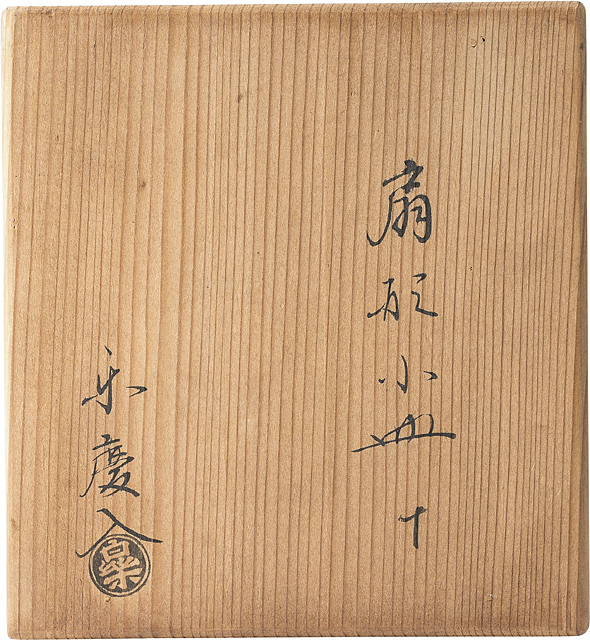 扇形小皿十
楽慶入
樂